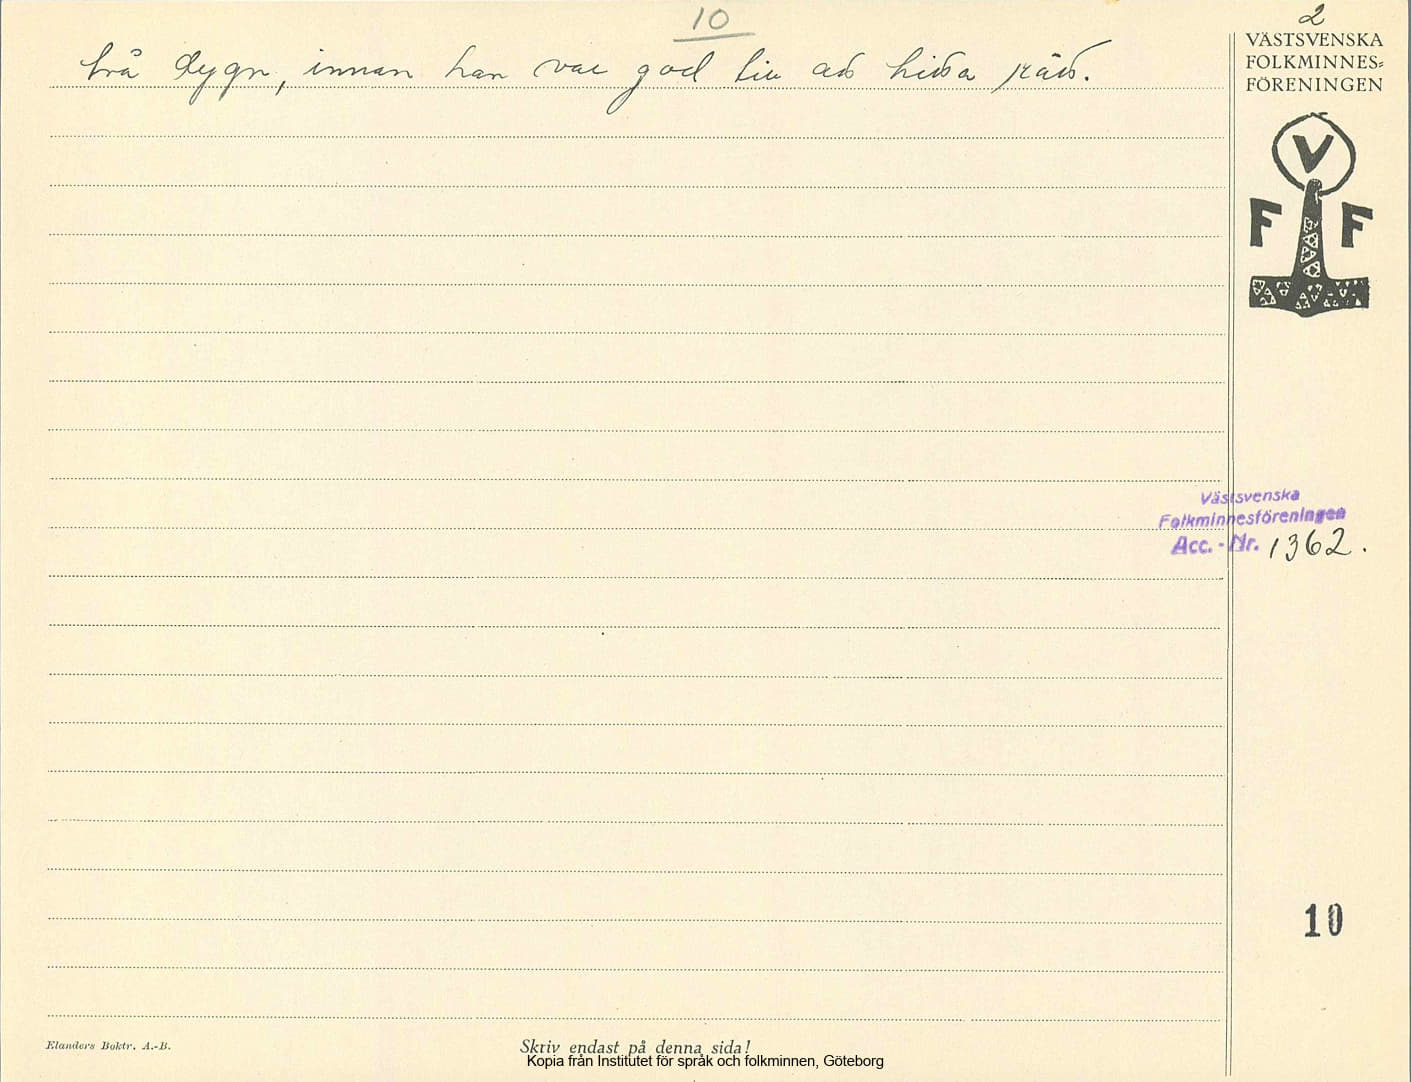 10
2
två dygn, innan han var god till att hitta rätt.
VÄSTSVENSKA
FOLKMINNES=
FÖRENINGEN
V
F F
Västsvenska
Folkminnesföreningen
Acc. - Nr. 1362.
10
Elanders Boktr. A.-B.
Skriv endast på denna sida!
Kopia från Institutet för språk och folkminnen, Göteborg